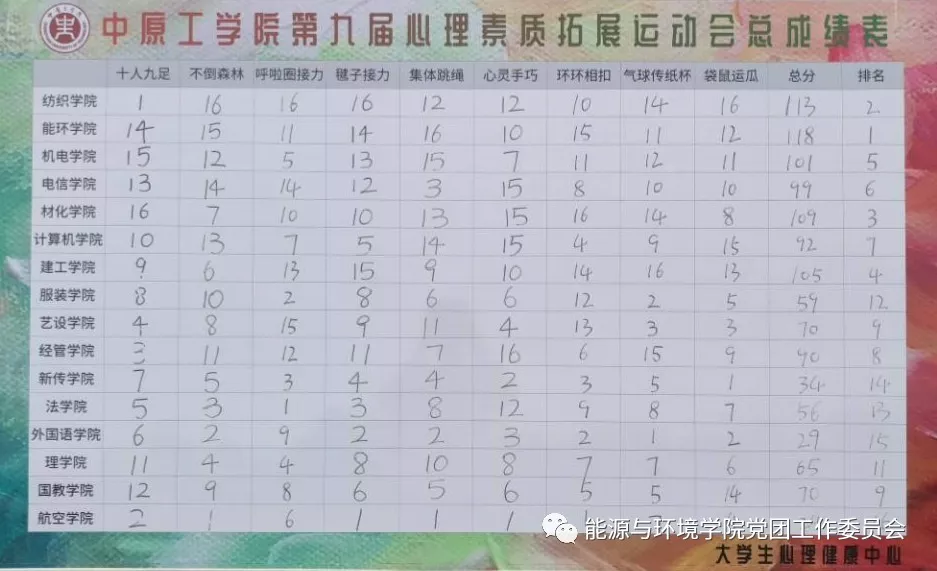 中原工学院第九届心理素质拓展运动会总成绩表
十人九足 不倒森林 呼啦圈接力 毽子接力 集体跳绳 心灵手巧 环环相扣 气球传纸杯 袋鼠运瓜 总分 排名
纺织学院 1 16 16 16 12 12 10 14 16 113 2
能环学院 14 15 11 14 16 10 15 11 12 118 1
机电学院 15 12 5 13 15 7 11 12 11 101 5
电信学院 13 14 14 12 3 15 8 10 10 99 6
材化学院 16 7 10 10 13 15 16 14 8 109 3
计算机学院 10 13 7 5 14 15 4 9 15 92 7
建工学院 9 6 13 15 9 10 14 16 13 105 4
服装学院 8 10 2 8 6 6 12 2 5 59 12
艺设学院 4 8 15 9 11 4 13 3 3 70 9
经管学院 3 11 12 11 7 16 6 15 9 90 8
新传学院 7 5 3 4 4 2 3 5 1 34 14
法学院 5 3 1 3 8 12 9 8 7 56 13
外国语学院 6 2 9 2 2 3 2 1 2 29 15
理学院 11 4 4 8 10 8 7 7 6 65 11
国教学院 12 9 8 6 5 6 5 5 14 70 9
航空学院 2 1 6 1 1 1
能源与环境学院党团工作委员会
大学生心理健康中心